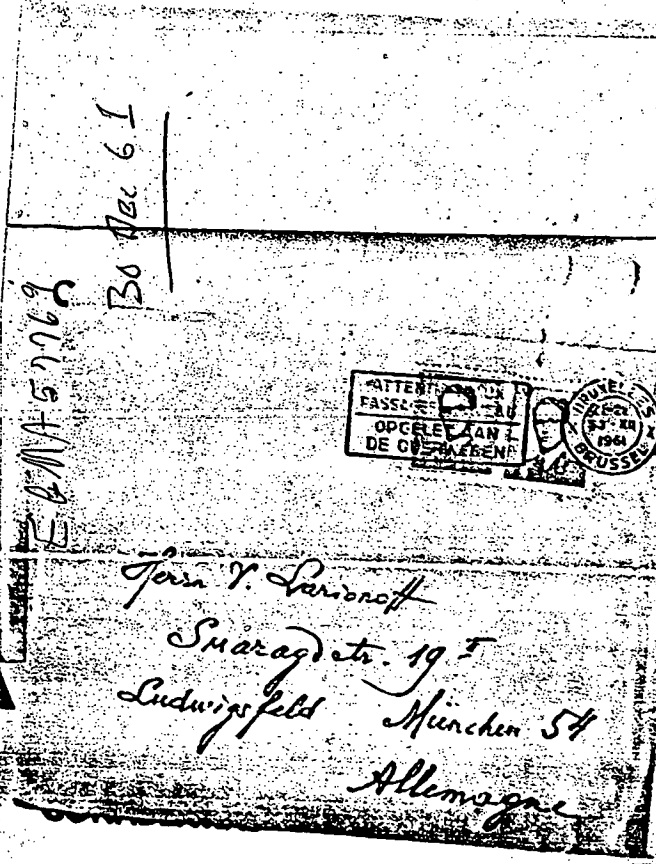 30 Dec 61
EGMA 57769
ATTENTION AUX
PASSAGES
OPGELET AAN
DE OVERWEGEN
BRUXELLES X
1961
BRUSSEL X
Herrn V. Larionoff
Smaragdstr. 19 I
Ludwigsfeld München 54
Allemagne